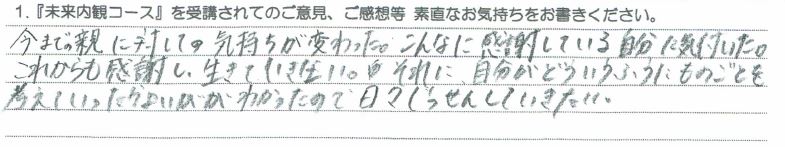 1.『未来内観コース』を受講されてのご意見、ご感想等 素直なお気持ちをお書きください。
今までの親に対しての気持ちが変わった。こんなに感謝している自分に気付いた。
これからも感謝し、生きていきたい。それに、自分がどういうふうにものごとを
考えていったらよいかがわかったので日々じっせんしていきたい。